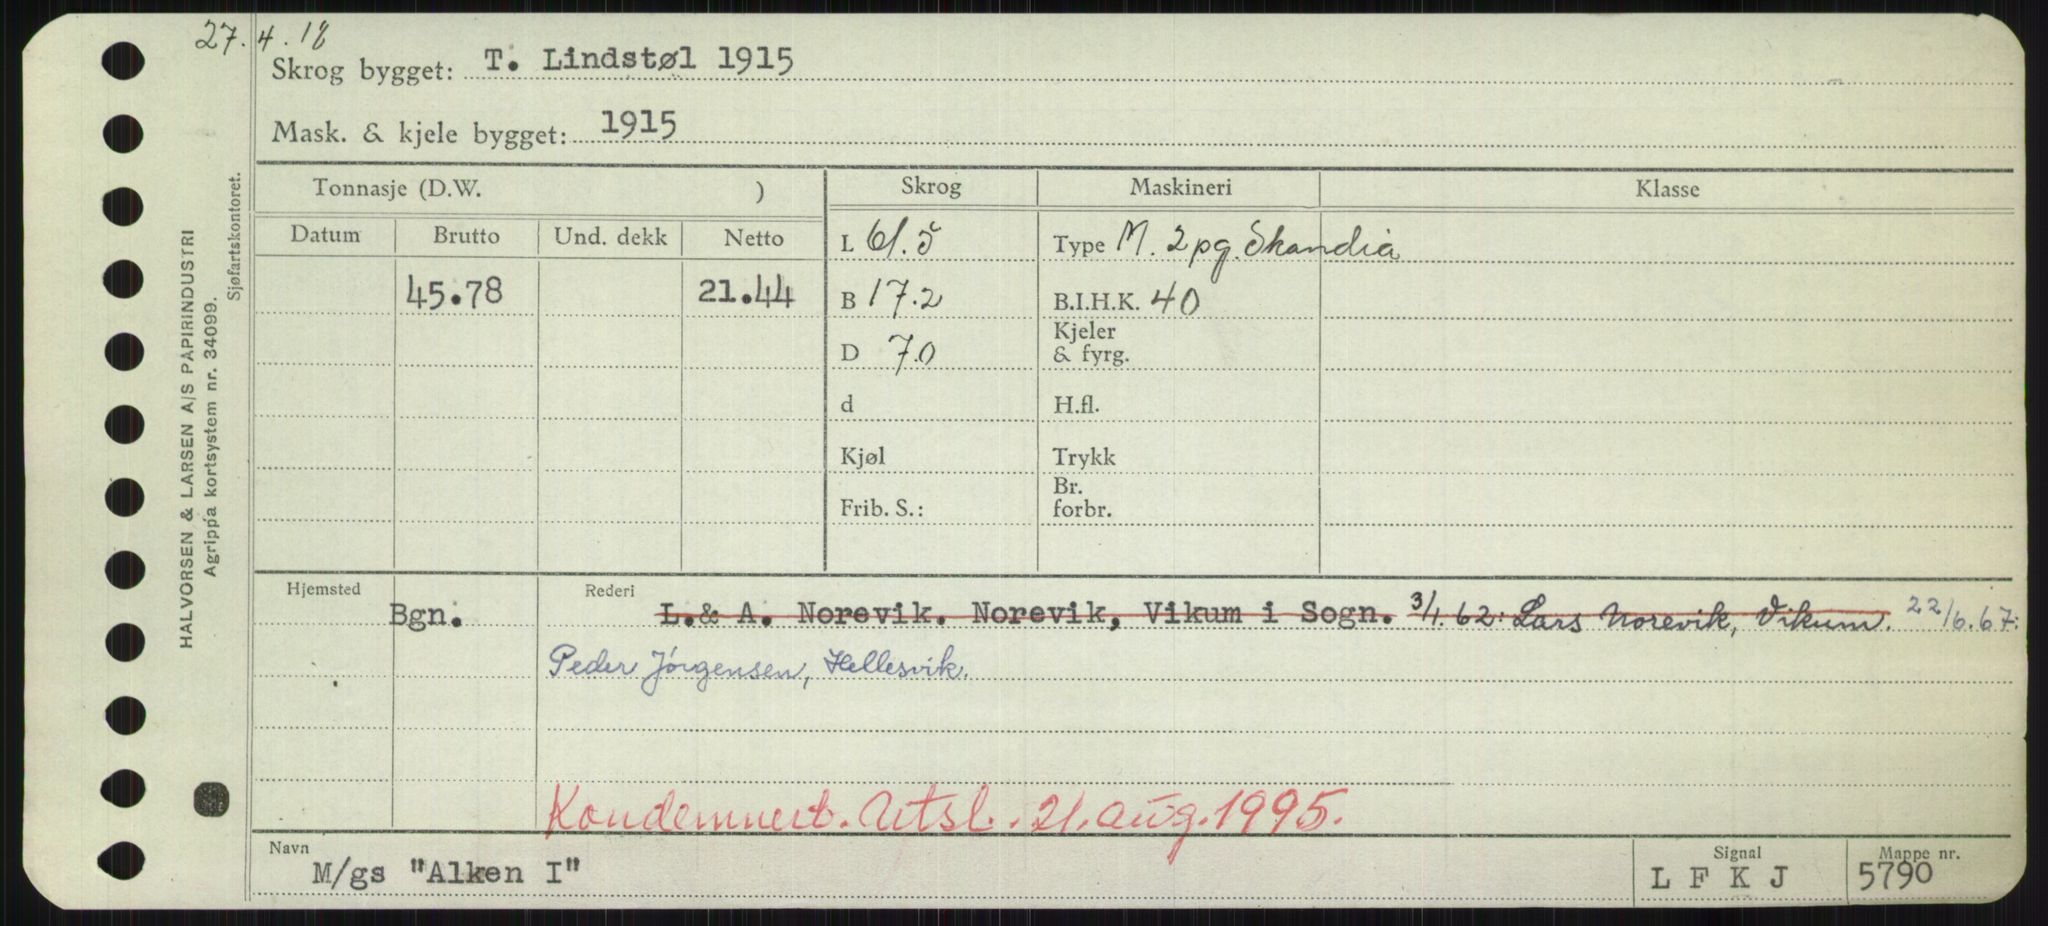 27.4.18
Skrog bygget: T. Lindstøl 1915
Mask. & kjele bygget: 1915
HALVORSEN & LARSEN A/S PAPIRINDUSTRI
Agrippa kortsystem nr. 34099.
Sjøfartskontoret.
Tonnasje (D.W. ) Skrog Maskineri Klasse
Datum Brutto Und. dekk Netto L 61.5 Type M. 2 pg. Skandia
45.78 21.44 B 17.2 B.I.H.K. 40
D 7.0 Kjeler & fyrg.
d H.fl.
Kjøl Trykk
Frib. S.: Br. forbr.
Hjemsted Rederi
Bgn. L.& A. Norevik. Norevik, Vikum i Sogn. 3/1.62: Lars Norevik, Vikum. 22/6.67:
Peder Jörgensen, Hellesvik.
Kondemnert. Utsl. 21. aug. 1995.
Navn Signal Mappe nr.
M/gs "Alken I" L F K J 5790